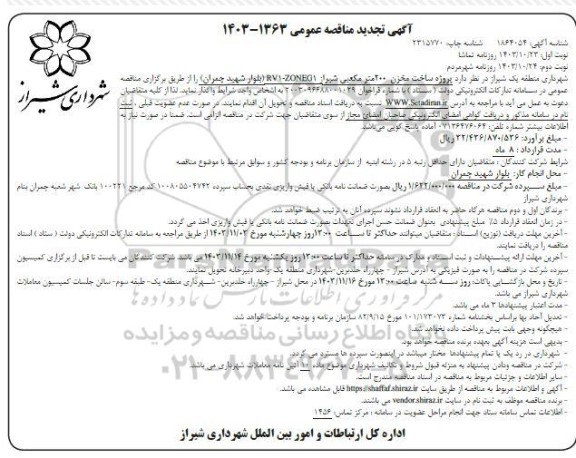 آگهی تجدید مناقصه عمومی ۱۳۶۳-۱۴۰۳
شناسه آگهی: ۱۸۶۴۰۵۴ شناسه چاپ: ۲۳۱۵۷۷۰
نوبت اول: ۱۴۰۳/۱۰/۲۳ روزنامه تماشا
نوبت دوم: ۱۴۰۳/۱۰/۲۴ روزنامه شهرمردم
شهرداری شیراز
شهرداری منطقه یک شیراز در نظر دارد پروژه ساخت مخزن ۲۰۰متر مکعبی شیراز RV1-ZONEG1 (بلوار شهید چمران) را از طریق برگزاری مناقصه
عمومی در سامانه تدارکات الکترونیکی دولت (ستاد) با شماره فراخوان به اشخاص واجد شرایط واگذار نماید. لذا از کلیه متقاضیان
دعوت به عمل می آید با مراجعه به آدرس WWW.Setadiran.ir نسبت به دریافت اسناد مناقصه و تحویل آن اقدام نمایند. در صورت عدم عضویت قبلی، ثبت
نام در سامانه مذکور و دریافت گواهی امضای الکترونیکی صاحبان امضای مجاز از سوی متقاضیان جهت شرکت در مناقصه الزامی است. ضمنا در صورت نیاز به
اطلاعات بیشتر شماره تلفن: ۰۷۱۳۶۴۷۶۰۶۴ آماده پاسخ گویی می‌باشد.
- مبلغ برآورد: ۳۲/۴۳۶/۸۷۰/۵۳۶ ریال
- مدت قرارداد: ۸ ماه
شرایط شرکت کنندگان: متقاضیان دارای حداقل رتبه ۵ در رشته ابنیه از سازمان برنامه و بودجه کشور و سوابق مرتبط با موضوع مناقصه
- محل انجام کار: بلوار شهید چمران
- مبلغ سپرده شرکت در مناقصه ۱/۶۲۲/۰۰۰/۰۰۰ ریال بصورت ضمانت نامه بانکی یا فیش واریزی نقدی بحساب سپرده ۱۰۰۸۰۵۵۰۴۷۴۲ کد مرجع ۱۰۰۲۲۱ بانک شهر شعبه چمران بنام
شهرداری شیراز
- برندگان اول و دوم مناقصه هرگاه حاضر به انعقاد قرارداد نشوند سپرده آنان به ترتیب ضبط خواهد شد.
- در زمان انعقاد قرارداد ۵٪ مبلغ پیشنهادی بعنوان ضمانت حسن اجرای تعهدات بصورت ضمانت نامه بانکی یا فیش واریزی اخذ می گردد.
- آخرین مهلت دریافت (توزیع) اسناد: متقاضیان میتوانند حداکثر تا ساعت ۱۳:۰۰روز چهارشنبه مورخ ۱۴۰۳/۱۱/۰۳ از طریق مراجعه به سامانه تدارکات الکترونیکی دولت (ستاد) اسناد
مناقصه را دریافت نمایند.
- آخرین مهلت ارائه پیشنهادات و ثبت اسناد و مدارک در سامانه حداکثر تا ساعت ۱۳:۰۰ روز یکشنبه مورخ ۱۴۰۳/۱۱/۱۴ می باشد. شرکت کنندگان می بایست تا قبل از برگزاری کمیسیون
سپرده شرکت در مناقصه را به صورت فیزیکی به آدرس شیراز - چهارراه خلدبرین-شهرداری منطقه یک- واحد دبیرخانه تحویل نمایند.
- تاریخ و محل بازگشایی پاکات: روز سه شنبه ساعت ۱۳:۰۰ مورخ ۱۴۰۳/۱۱/۱۶ در محل شیراز - چهارراه خلدبرین- شهرداری منطقه یک- طبقه سوم- سالن جلسات کمیسیون معاملات
شهرداری شیراز می باشد.
- مدت اعتبار پیشنهادها ۳ ماه می باشد.
- تعدیل آحاد بها براساس بخشنامه شماره ۱۰۱/۱۷۳۰۷۳ مورخ ۸۲/۹/۱۵ سازمان برنامه و بودجه پرداخت خواهد شد.
- هیچگونه وجهی بابت پیش پرداخت داده نخواهد شد.
- بدیهی است هزینه آگهی بعهده برنده مناقصه خواهد بود.
- شهرداری در رد یک یا تمام پیشنهادها مختار میباشد در اینصورت سپرده ها مسترد می گردد.
- شرکت در مناقصه ودادن پیشنهاد به منزله قبول شروط و تکالیف شهرداری موضوع ماده ۱۰ آئین نامه معاملات شهرداری می باشد.
- سایر اطلاعات و جزئیات مربوط به مناقصه در اسناد مناقصه مندرج است.
- آگهی و اطلاعات مربوط به مناقصه از طریق سایت https://shaffaf.shiraz.ir قابل مشاهده می باشد.
- برنده مناقصه موظف به ثبت نام در سایت vendor.shiraz.ir می باشند.
- اطلاعات تماس سامانه ستاد جهت انجام مراحل عضویت در سامانه: مرکز تماس: ۱۴۵۶
اداره کل ارتباطات و امور بین الملل شهرداری شیراز